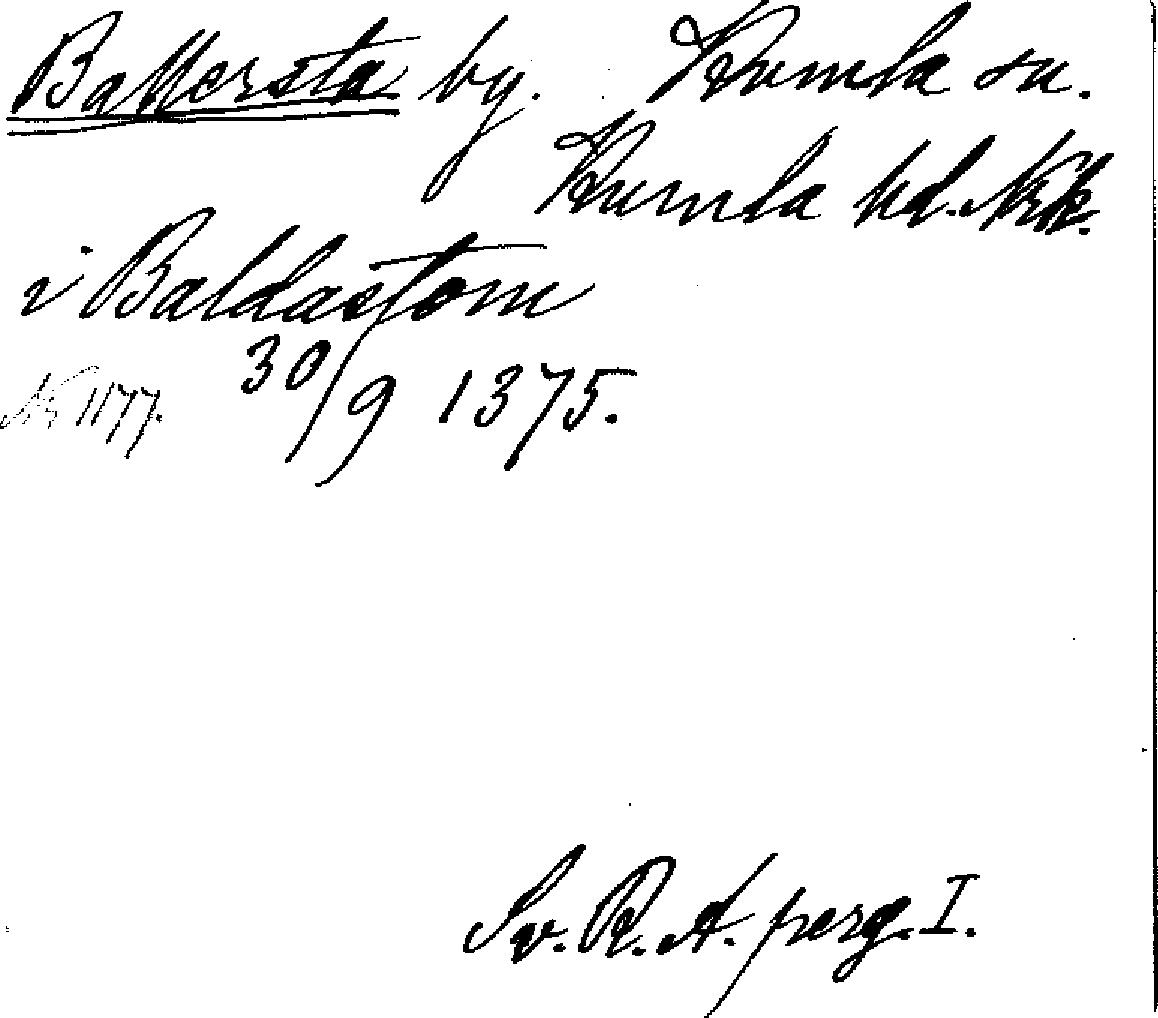 Ballersta by. Kumla sn.
Kumla hd. Nrk.
i Baldastom
Nr 1177. 30/9 1375.
Sv. R. A. perg. I.